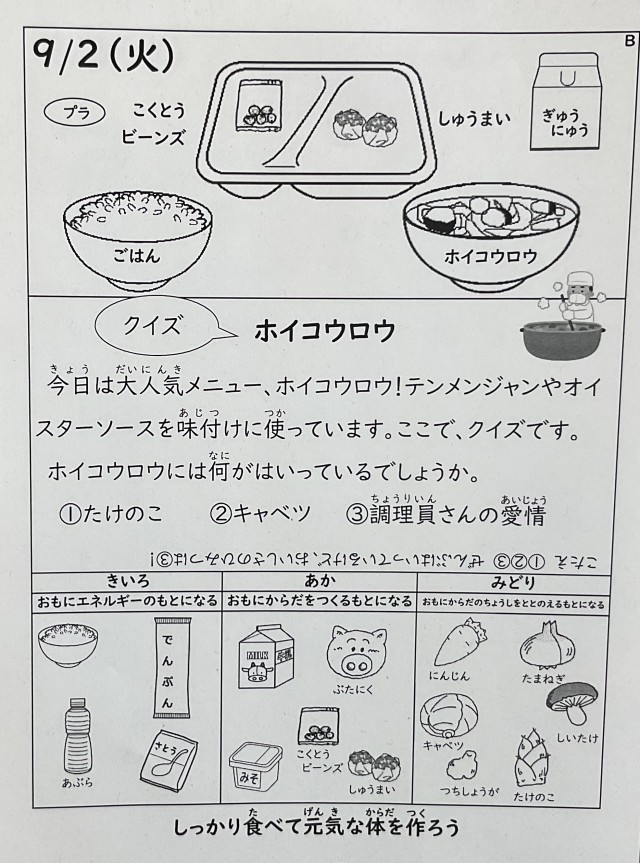 B
9/2(火)
プラ
こくとう
ビーンズ
しゅうまい
ぎゅう
にゅう
ごはん
ホイコウロウ
クイズ
ホイコウロウ
今日は大人気メニュー、ホイコウロウ!テンメンジャンやオイ
スターソースを味付けに使っています。ここで、クイズです。
ホイコウロウには何がはいっているでしょうか。
①たけのこ ②キャベツ ③調理員さんの愛情
こたえ ①②③ ぜんぶはいっているけど、おいしさのひみつは③!
きいろ
おもにエネルギーのもとになる
でんぷん
あぶら
さとう
あか
おもにからだをつくるもとになる
MILK
牛乳
ぶたにく
こくとう
ビーンズ
みそ
しゅうまい
みどり
おもにからだのちょうしをととのえるもとになる
にんじん
たまねぎ
しいたけ
キャベツ
つちしょうが
たけのこ
しっかり食べて元気な体を作ろう